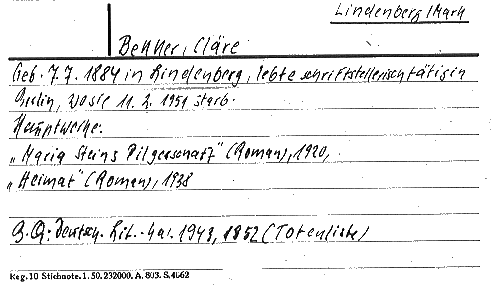 Lindenberg/Mark
Benner, Cläre
Geb. 7.7. 1884 in Lindenberg, lebte schriftstellerisch tätig in
Berlin, wo sie 11. 2. 1951 starb.
Hauptwerke:
„Maria Steins Pilgerschatz" (Roman), 1920,
„Heimat" (Roman), 1938
B.Q: Deutsch. Lit.-Kal. 1943, 1852 (Totenliste)
Reg. 10 Stichnote. 1. 50. 232000. A. 803. S. 4662